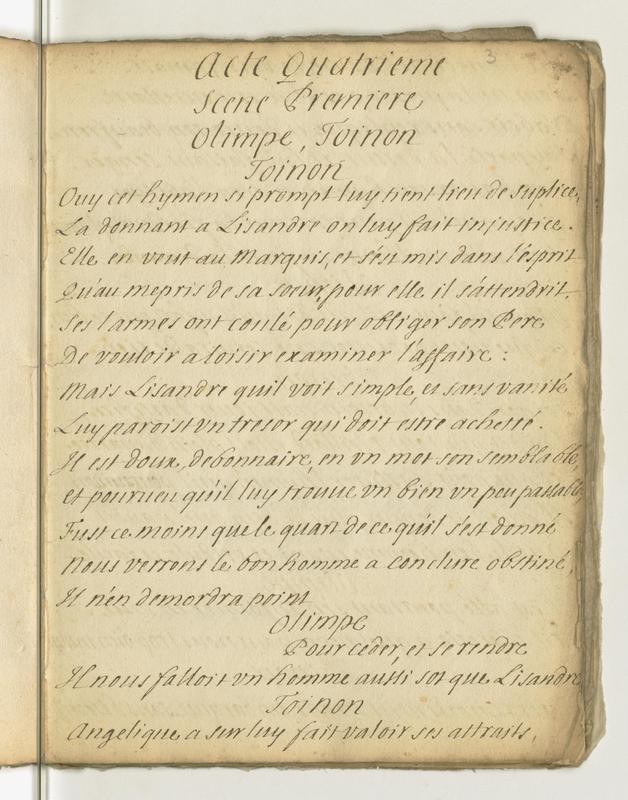 3
Acte Quatrieme
Scene Premiere
Olimpe, Toinon
Toinon
Ouy cet hymen si prompt luy tient lieu de suplice,
La donnant a Lisandre on luy fait injustice.
Elle en veut au Marquis, et s'est mis dans l'esprit
Qu'au mepris de sa soeur, pour elle il s'attendrit.
Ses larmes ont coulé pour obliger son Pere
De vouloir a loisir examiner l'affaire :
Mais Lisandre quil voit simple, et sans vanité
Luy paroist vn tresor qui doit estre achetté.
Il est doux, debonnaire, en vn mot son semblable,
et pourueu qu'il luy trouue vn bien vn peu passable
Fust ce moins que le quart de ce qu'il s'est donné
Nous verrons le bon homme a conclure obstiné,
Il n'en demordra point
Olimpe
Pour ceder, et se rendre
Il nous falloit vn homme aussi sot que Lisandre
Toinon
Angelique a sur luy fait valoir ses attraits,